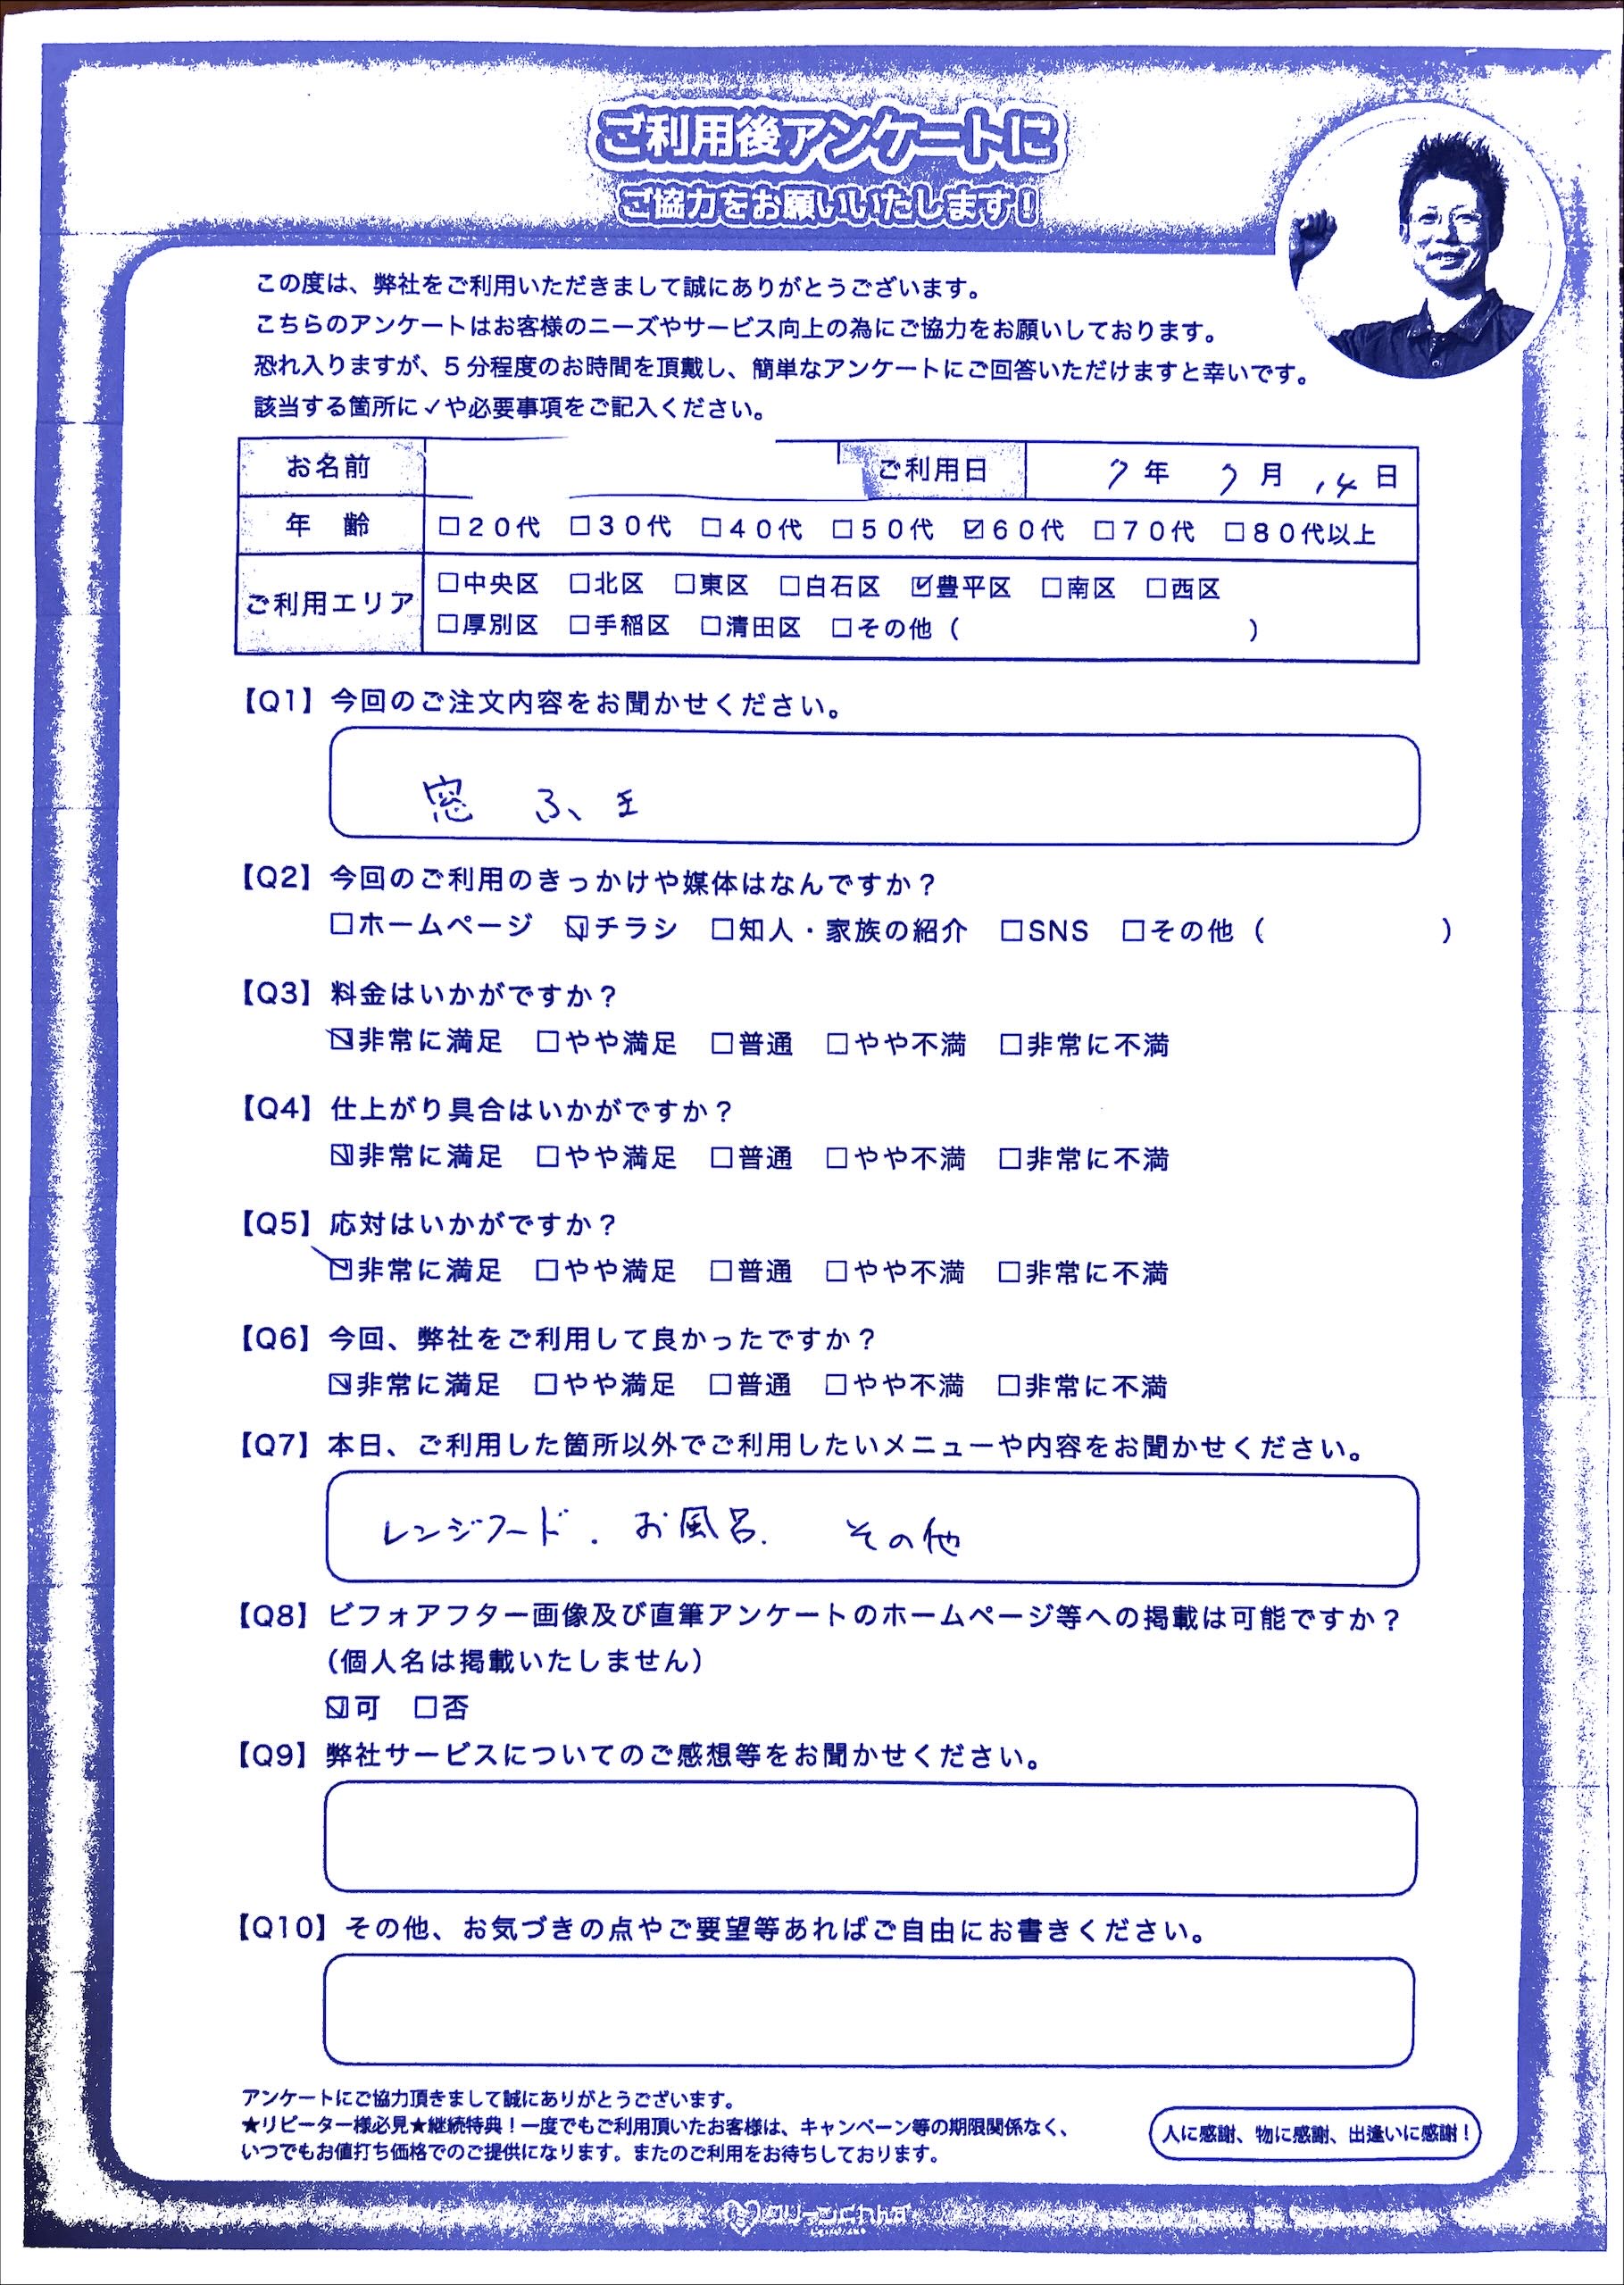 ご利用後アンケートに
ご協力をお願いいたします!
この度は、弊社をご利用いただきまして誠にありがとうございます。
こちらのアンケートはお客様のニーズやサービス向上の為にご協力をお願いしております。
恐れ入りますが、5分程度のお時間を頂戴し、簡単なアンケートにご回答いただけますと幸いです。
該当する箇所に✓や必要事項をご記入ください。
お名前 ご利用日 7年 7月 14日
年 齢 □20代 □30代 □40代 □50代 ☑60代 □70代 □80代以上
ご利用エリア □中央区 □北区 □東区 □白石区 ☑豊平区 □南区 □西区
□厚別区 □手稲区 □清田区 □その他( )
【Q1】今回のご注文内容をお聞かせください。
窓 ふき
【Q2】今回のご利用のきっかけや媒体はなんですか?
□ホームページ ☑チラシ □知人・家族の紹介 □SNS □その他( )
【Q3】料金はいかがですか?
☑非常に満足 □やや満足 □普通 □やや不満 □非常に不満
【Q4】仕上がり具合はいかがですか?
☑非常に満足 □やや満足 □普通 □やや不満 □非常に不満
【Q5】応対はいかがですか?
☑非常に満足 □やや満足 □普通 □やや不満 □非常に不満
【Q6】今回、弊社をご利用して良かったですか?
☑非常に満足 □やや満足 □普通 □やや不満 □非常に不満
【Q7】本日、ご利用した箇所以外でご利用したいメニューや内容をお聞かせください。
レンジフード. お風呂. その他
【Q8】ビフォアフター画像及び直筆アンケートのホームページ等への掲載は可能ですか?
(個人名は掲載いたしません)
☑可 □否
【Q9】弊社サービスについてのご感想等をお聞かせください。
【Q10】その他、お気づきの点やご要望等あればご自由にお書きください。
アンケートにご協力頂きまして誠にありがとうございます。
★リピーター様必見★継続特典!一度でもご利用頂いたお客様は、キャンペーン等の期限関係なく、
いつでもお値打ち価格でのご提供になります。またのご利用をお待ちしております。
人に感謝、物に感謝、出逢いに感謝!